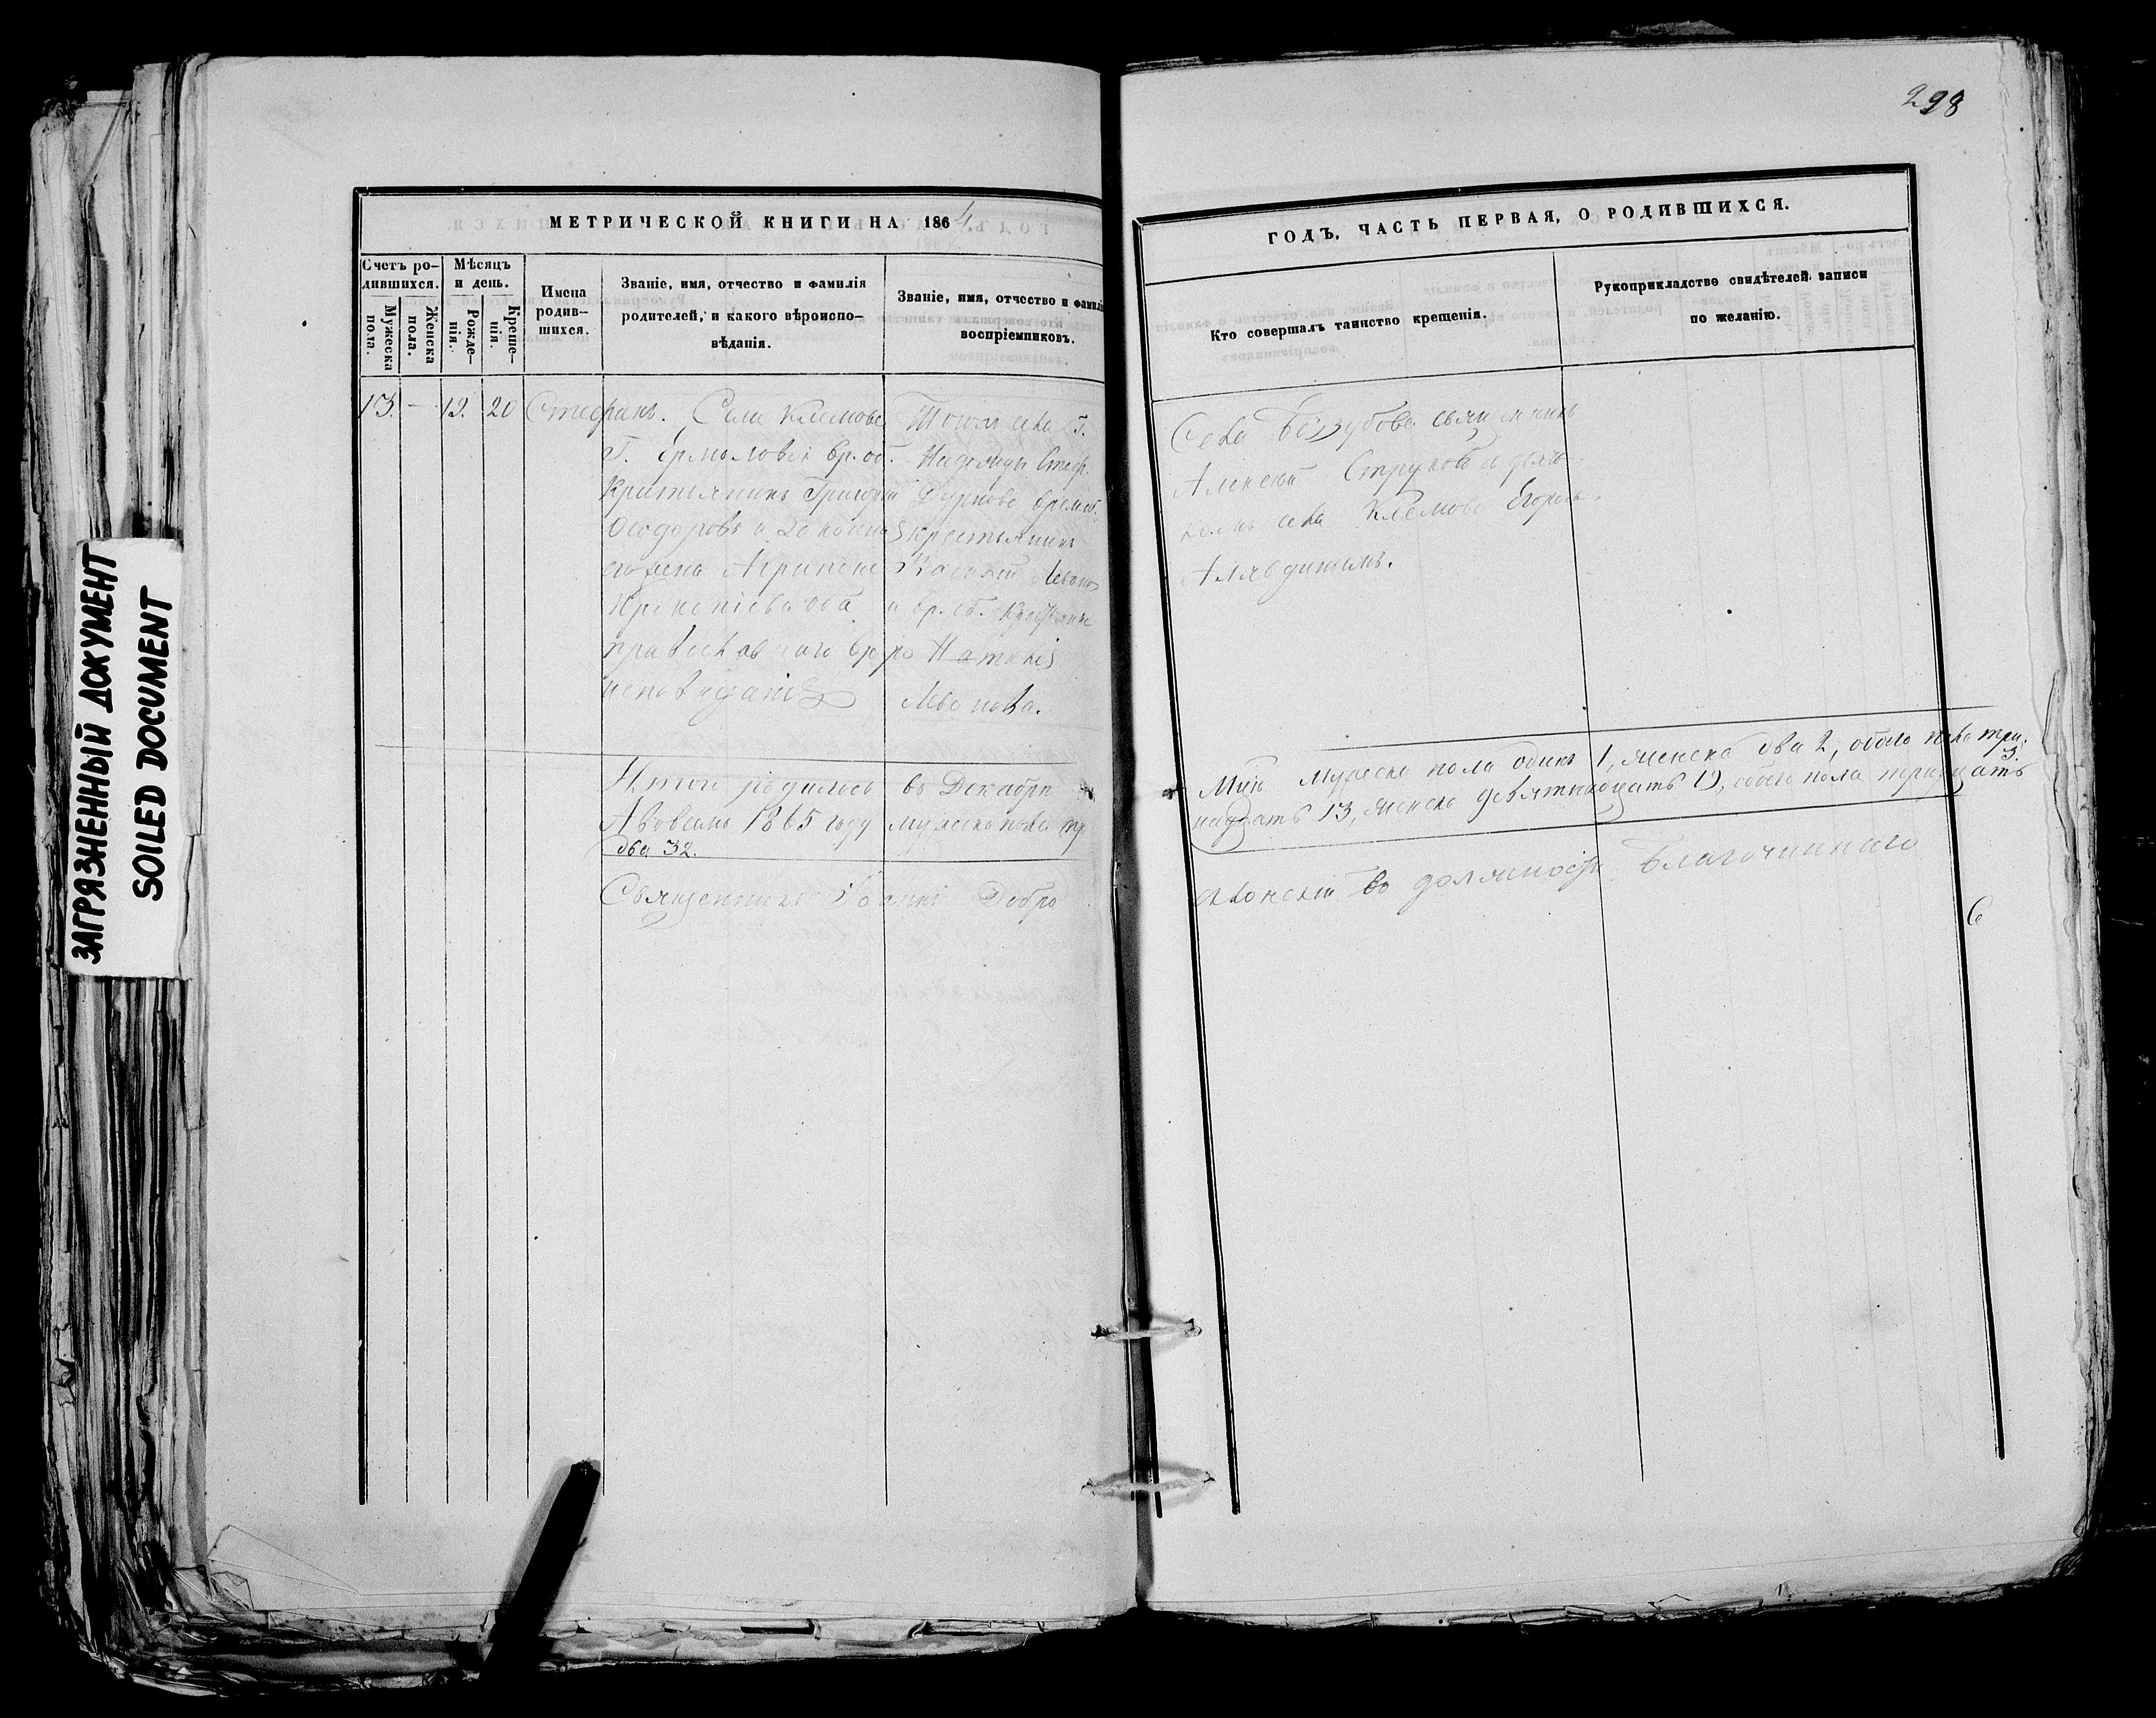 298
МЕТРИЧЕСКОЙ КНИГИ НА 1864
ГОДЪ, ЧАСТЬ ПЕРВАЯ, О РОДИВШИХСЯ.
Счетъ ро-
дившихся.
Мужеска
пола.
Женска
пола.
Мѣсяцъ
и день.
Рожде-
нія.
Креще-
нія.
Имена
родив-
шихся.
Званіе, имя, отчество и фамилія
родителей, и какого вѣроиспо-
вѣданія.
Званіе, имя, отчество и фамилі
воспріемниковъ.
Кто совершалъ таинство крещенія.
Рукоприкладство свидѣтелей записи
по желанію.
13. - 19. 20 Стефанъ.
Села Клемова
Г. Ермоловой вр. об.
Крестьянинъ Григорій
Ѳеодоровъ и законная
его жена Агрипена
Прокопіева оба
православнаго
исповѣданія
Тогоже села Г.
Надежды Стеф.
Дурново времоб.
крестьянинъ
Василій Левоновъ
и вр. об. крестьянка
Наталія
Левонова.
Села Беззубова священникъ
Алексѣй Струковъ и дьяч-
комъ села Клемова Егоромъ
Итого родилось въ Декабрѣ
Мцѣ мужеска пола одинъ 1, женска два 2, обоего пола три
3.
А вовсемъ 1865 году мужеска пола три
надцать 13, женска девятнадцать 19, обоего пола тридцать
два 32.
Священникъ Іоаннъ Добро
клонскій въ должности Благочиннаго
ЗАГРЯЗНЕННЫЙ ДОКУМЕНТ
SOILED DOCUMENT